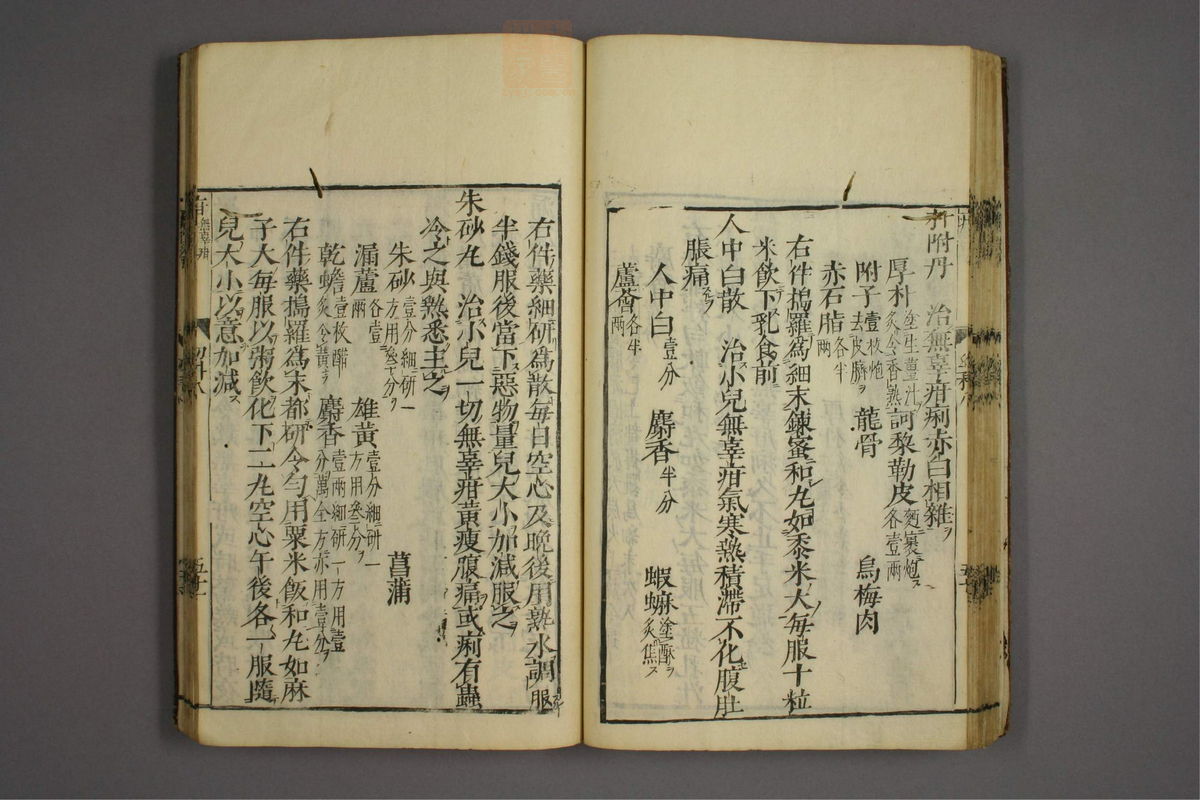 朴附丹　治無辜疳痢赤白相雜
厚朴塗生薑汁炙令香熟　訶黎勒皮麪裹炮各壹兩
附子壹枚炮去皮臍　龍骨　烏梅肉
赤石脂各半兩
右件搗羅為細末鍊蜜和丸如黍米大每服十粒
米飲下乳食前
人中白散　治小兒無辜疳氣寒熱積滯不化腹肚
脹痛
人中白壹分　麝香半分　蝦蟆塗酥炙焦
蘆薈各半兩
右件藥細研為散每日空心及晚後用熟水調服
半錢服後當下惡物量兒大小加減服之
朱砂丸　治小兒一切無辜疳黃瘦腹痛或痢有蟲
冷之與熱悉主之
朱砂壹分細研一方用叁分　雄黃壹分細研一方用叁分　菖蒲
漏蘆各壹兩
乾蟾壹枚酥炙令黃　麝香壹兩細研一方用壹分萬全方亦用壹分
右件藥搗羅為末都研令勻用粟米飯和丸如麻
子大每服以粥飲化下二丸空心午後各一服隨
兒大小以意加減